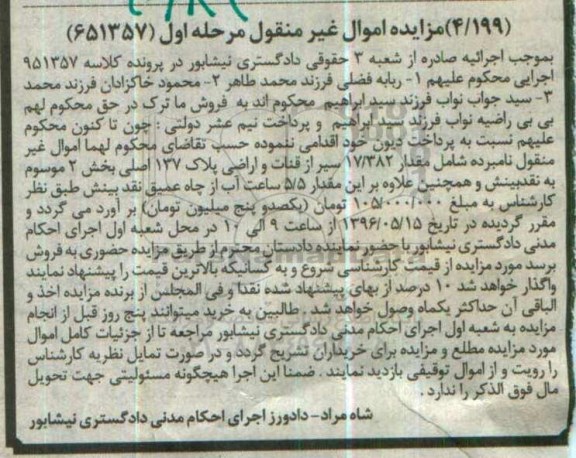 (۴/۱۹۹)مزایده اموال غیر منقول مرحله اول (۶۵۱۳۵۷)
بموجب اجرائیه صادره از شعبه ۳ حقوقی دادگستری نیشابور در پرونده کلاسه ۹۵۱۳۵۷
اجرایی محکوم علیهم ۱- ربابه فضلی فرزند محمد طاهر ۲- محمود خاکزادان فرزند محمد
۳- سید جواب نواب فرزند سید ابراهیم محکوم اند به فروش ما ترک در حق محکوم لهم
بی بی راضیه نواب فرزند سید ابراهیم و پرداخت نیم عشر دولتی : چون تا کنون محکوم
علیهم نسبت به پرداخت دیون خود اقدامی ننموده حسب تقاضای محکوم لهما اموال غیر
منقول نامبرده شامل مقدار ۱۷/۳۸۲ سیر از قنات و اراضی پلاک ۱۳۷ اصلی بخش ۲ موسوم
به نقدبینش و همچنین علاوه بر این مقدار ۵/۵ ساعت آب از چاه عمیق نقد بینش طبق نظر
کارشناس به مبلغ ۱۰۵/۰۰۰/۰۰۰ تومان (یکصدو پنج میلیون تومان) بر آورد می گردد و
مقرر گردیده در تاریخ ۱۳۹۶/۰۵/۱۵ از ساعت ۹ الی ۱۰ در محل شعبه اول اجرای احکام
مدنی دادگستری نیشابور با حضور نماینده دادستان محترم از طریق مزایده حضوری به فروش
برسد مورد مزایده از قیمت کارشناسی شروع و به کسانیکه بالاترین قیمت را پیشنهاد نمایند
واگذار خواهد شد ۱۰ درصد از بهای پیشنهاد شده نقدا و فی المجلس از برنده مزایده اخذ و
الباقی آن حداکثر یکماه وصول خواهد شد . طالبین به خرید میتوانند پنج روز قبل از انجام
مزایده به شعبه اول اجرای احکام مدنی دادگستری نیشابور مراجعه تا از جزئیات کامل اموال
مورد مزایده مطلع و مزایده برای خریداران تشریح گردد و در صورت تمایل نظریه کارشناس
را رویت و از اموال توقیفی بازدید نمایند . ضمنا این اجرا هیچگونه مسئولیتی جهت تحویل
مال فوق الذکر را ندارد .
شاه مراد- دادورز اجرای احکام مدنی دادگستری نیشابور